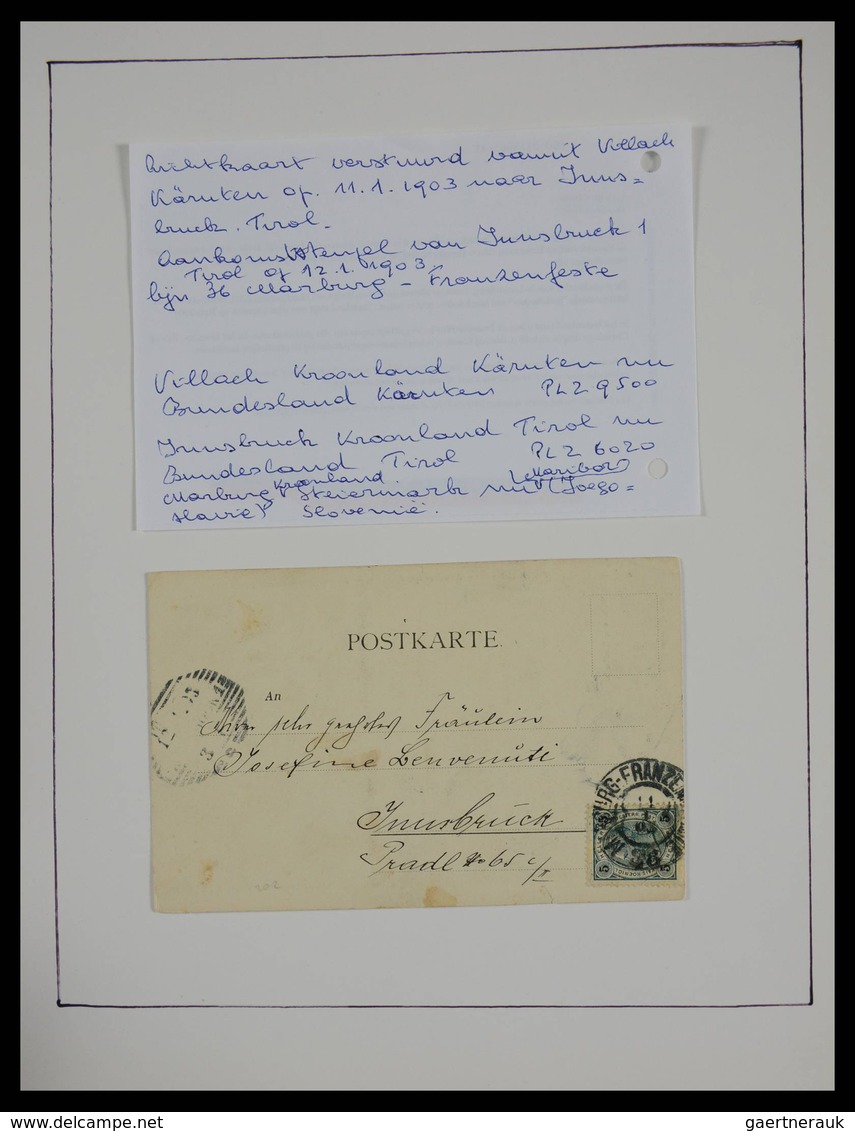 lichtkaart verstuurd vanuit Villach
Kärnten op. 11.1.1903 naar Inns=
bruck. Tirol.
Aankomststempel van Innsbruck 1
Tirol op 12.1.1903
lijn 36 Marburg - Franzenfeste
Villach Kroonland Kärnten nu
Bundesland Kärnten PLZ 9500
Innsbruck Kroonland Tirol nu
Bundesland Tirol PLZ 6020
Marburg Kroonland Steiermark nu (Maribor) (Joego=
slavië) Slovenië.
POSTKARTE.
An
sehr geehrtes Fräulein
Josefine Benvenuti
Innsbruck
Pradl No 65 c/II
MARBURG-FRANZENSFESTE
11
1
03
36
5
5
202
gaertnerauk
gaertnerauk